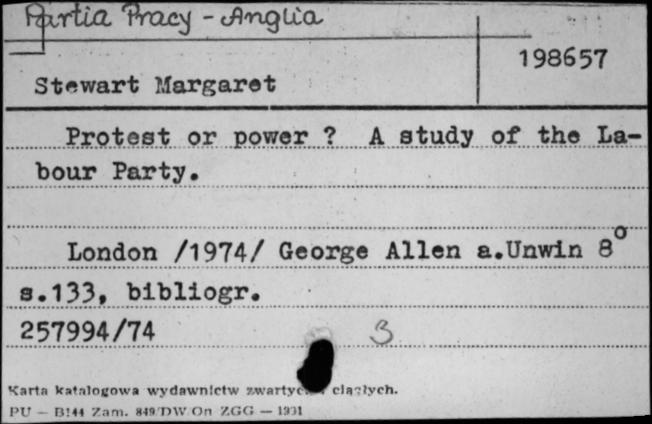 Partia Pracy - Anglia
198657
Stewart Margaret
Protest or power ? A study of the La-
bour Party.
London /1974/ George Allen a.Unwin 8º
s.133, bibliogr.
257994/74 3
Karta katalogowa wydawnictw zwartych ciągłych.
PU — B144 Zam. 849/DW On ZGG —